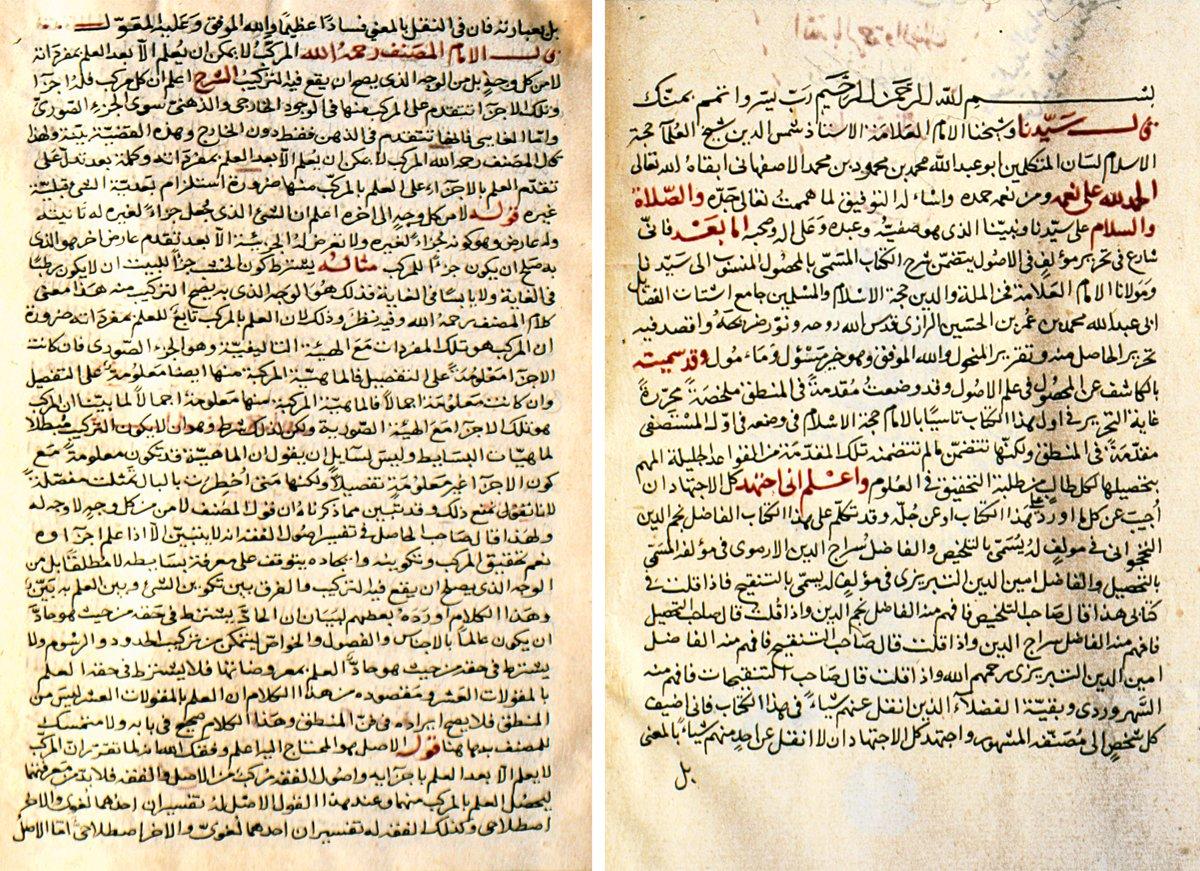 بسم الله الرحمن الرحيم رب يسر وانعم بمنك
قال سيدنا وشيخنا الامام العلامة الاستاذ شمس الدين شيخ العلماء حجة
الاسلام لسان المتكلمين ابو عبد الله محمد بن محمود بن محمد الاصفهاني ابقاه الله تعالى
الحمد لله على نعمه ومن نعمه حمده واسأله التوفيق لما هممت تعالى جده والصلاة
والسلام على سيدنا ونبينا الذي هو صفيه وعبده وعلى اله وصحبه اما بعد فاني
شارع في تحرير مؤلف في الاصول يتضمن شرح الكتاب المسمى بالمحصول المنسوب الى سيدنا
ومولانا الامام العلامة فخر الملة والدين حجة الاسلام والمسلمين جامع اشتات الفضائل
ابي عبد الله محمد بن عمر بن الحسين الرازي قدس الله روحه ونور ضريحه واقصد فيه
تحرير الحاصل منه وتقرير المنحول والله الموفق وهو خير مسؤل ومأمول وقد سميته
بالكاشف عن المحصول في علم الاصول وقد وضعت مقدمة في المنطق ملخصة محررة
غاية التحرير في اول هذا الكتاب تاسيا بالامام حجة الاسلام في وضعه في اوله المستصفى
مقدمة في المنطق ولكنها تتضمن ما لم تتضمنه تلك المقدمة من القواعد الجليلة المهم
بتحصيلها كل طالب من طلبة التحقيق في العلوم واعلم اني اجتهد كل الاجتهاد ان
اجيب عن كل ما اورد على هذا الكتاب او عن جله وقد تكلم على هذا الكتاب الفاضل نجم الدين
النخجواني في مولف له يسمى بالتلخيص والفاضل سراج الدين الارموي في مؤلفه المسمى
بالتحصيل والفاضل امين الدين التبريزي في مؤلف له يسمى بالتنقيح فاذا قلت في
كتابي هذا قال صاحب التلخيص فافهم منه الفاضل نجم الدين واذا قلت قال صاحب التحصيل
فافهم منه الفاضل سراج الدين واذا قلت قال صاحب التنقيح فافهم منه الفاضل
امين الدين التبريزي رحمهم الله واذا قلت قال صاحب التنقيحات فافهم منه
السهروردي وبقية الفضلاء الذين انقل عنهم شياء في هذا الكتاب فاني اضيف
كل شخص الى مصنفه المشهور واجتهد كل الاجتهاد ان لا انقل عن احد منهم شياء بالمعنى
بل
بل بعبارته فان في النقل بالمعنى فسادا عظيما والله الموفق وعليه المعول
قال الامام المصنف رحمه الله المركب لا يمكن ان يعلم الا بعد العلم بمفرداته
لا من كل وجه بل من الوجه الذي يصح ان يقع فيه التركيب الشرح اعلم ان كل مركب فله اجزاء
وتلك الاجزاء تتقدم على المركب منها في الوجود الخارجي والذهني سوى الجزء الصوري
تتقدم في الذهن فقط دون الخارج وهذه القضية بينة ولهذا
قال المصنف رحمه الله المركب لا يمكن ان يعلم الا بعد العلم بمفرداته وكلمة بعد تدل على
تقدم العلم بالاجزاء على العلم بالمركب منها ضرورة استلزام بعدية الشي قبلية
غيره قوله لا من كل وجه الى اخره اعلم ان الشئ الذي جعل جزاء لغيره له ذاتيته
وله عارض وهو كونه جزاء لغيره ولا تعرض له الجزئية الا بعد تقدم عارض اخر هو الذي
به صلح ان يكون جزءا للمركب مثاله يشترط كون الخشب جزأ للبيت ان لا يكون رطبا
في الغاية ولا يابسا في الغاية فذلك هو الوجه الذي به يصح التركيب منه هذا معنى
كلام المصنف رحمه الله وفيه نظر وذلك لان العلم بالمركب تابع للعلم بمفرداته ضرورة
ان المركب هو تلك المفردات مع الهيئة التاليفية وهو الجزء الصوري فان كانت
الاجزا معلومة على التفصيل فالماهية المركبة منها ايضا معلومة على التفصيل
وان كانت معلومة اجمالا فالماهية المركبة منها معلومة اجمالا لما بينا ان المركب
هو تلك الاجزاء مع الهيئة الصورية ولكن لذلك شرط وهو ان لا يكون التركيب مبطلا
لماهيات البسايط وليس لسايل ان يقول ان الماهية قد تكون معلومة مع
كون الاجزاء غير معلومة تفصيلا ولكنها متى اخطرت بالبال تمثلت مفصلة
لانا نقول نمنع ذلك وقد تبين مما ذكرناه ان قول المصنف لا من كل وجه لا وجه له
ولهذا قال صاحب الحاصل في تفسير اصول الفقه انه لا يتبين الا اذا علم اجزاءه
نعم تحقيق المركب وتكوينه وايجاده يتوقف على معرفة بسايطه لا مطلقا بل من
الوجه الذي يصلح ان يقع فيه التركيب فالفرق بين تكوين الشئ وبين العلم به بين
وهذا الكلام اورده بعضهم لبيان ان الحاد يشترط في حقه من حيث هو حاد
ان يكون عالما بالاجناس والفصول والخواص ليتمكن من تركيب الحدود والرسوم ولا
يشترط في حقه من حيث هو حاد العلم بمعروضاتها فلا يشترط في حقه العلم
بالمقولات العشر ومقصوده من هذا الكلام ان العلم بالمقولات العشر ليس من
المنطق فلا يصح ايراده في فن المنطق وهذا الكلام صحيح في بابه ولا متمسك
للمصنف به هاهنا قوله الاصل هو المحتاج اليه اعلم وفقك الله انه لما تقرر ان المركب
لا يعلم الا بعد العلم باجزايه واصول الفقه مركب من الاصل والفقه فلا بد من معرفتهما
ليحصل العلم بالمركب منهما وعند هذا القول الاصل له تفسيران احدهما لغوي والاخر
اصطلاحي وكذلك الفقه له تفسيران احدهما لغوي والاخر اصطلاحي اما الاصل